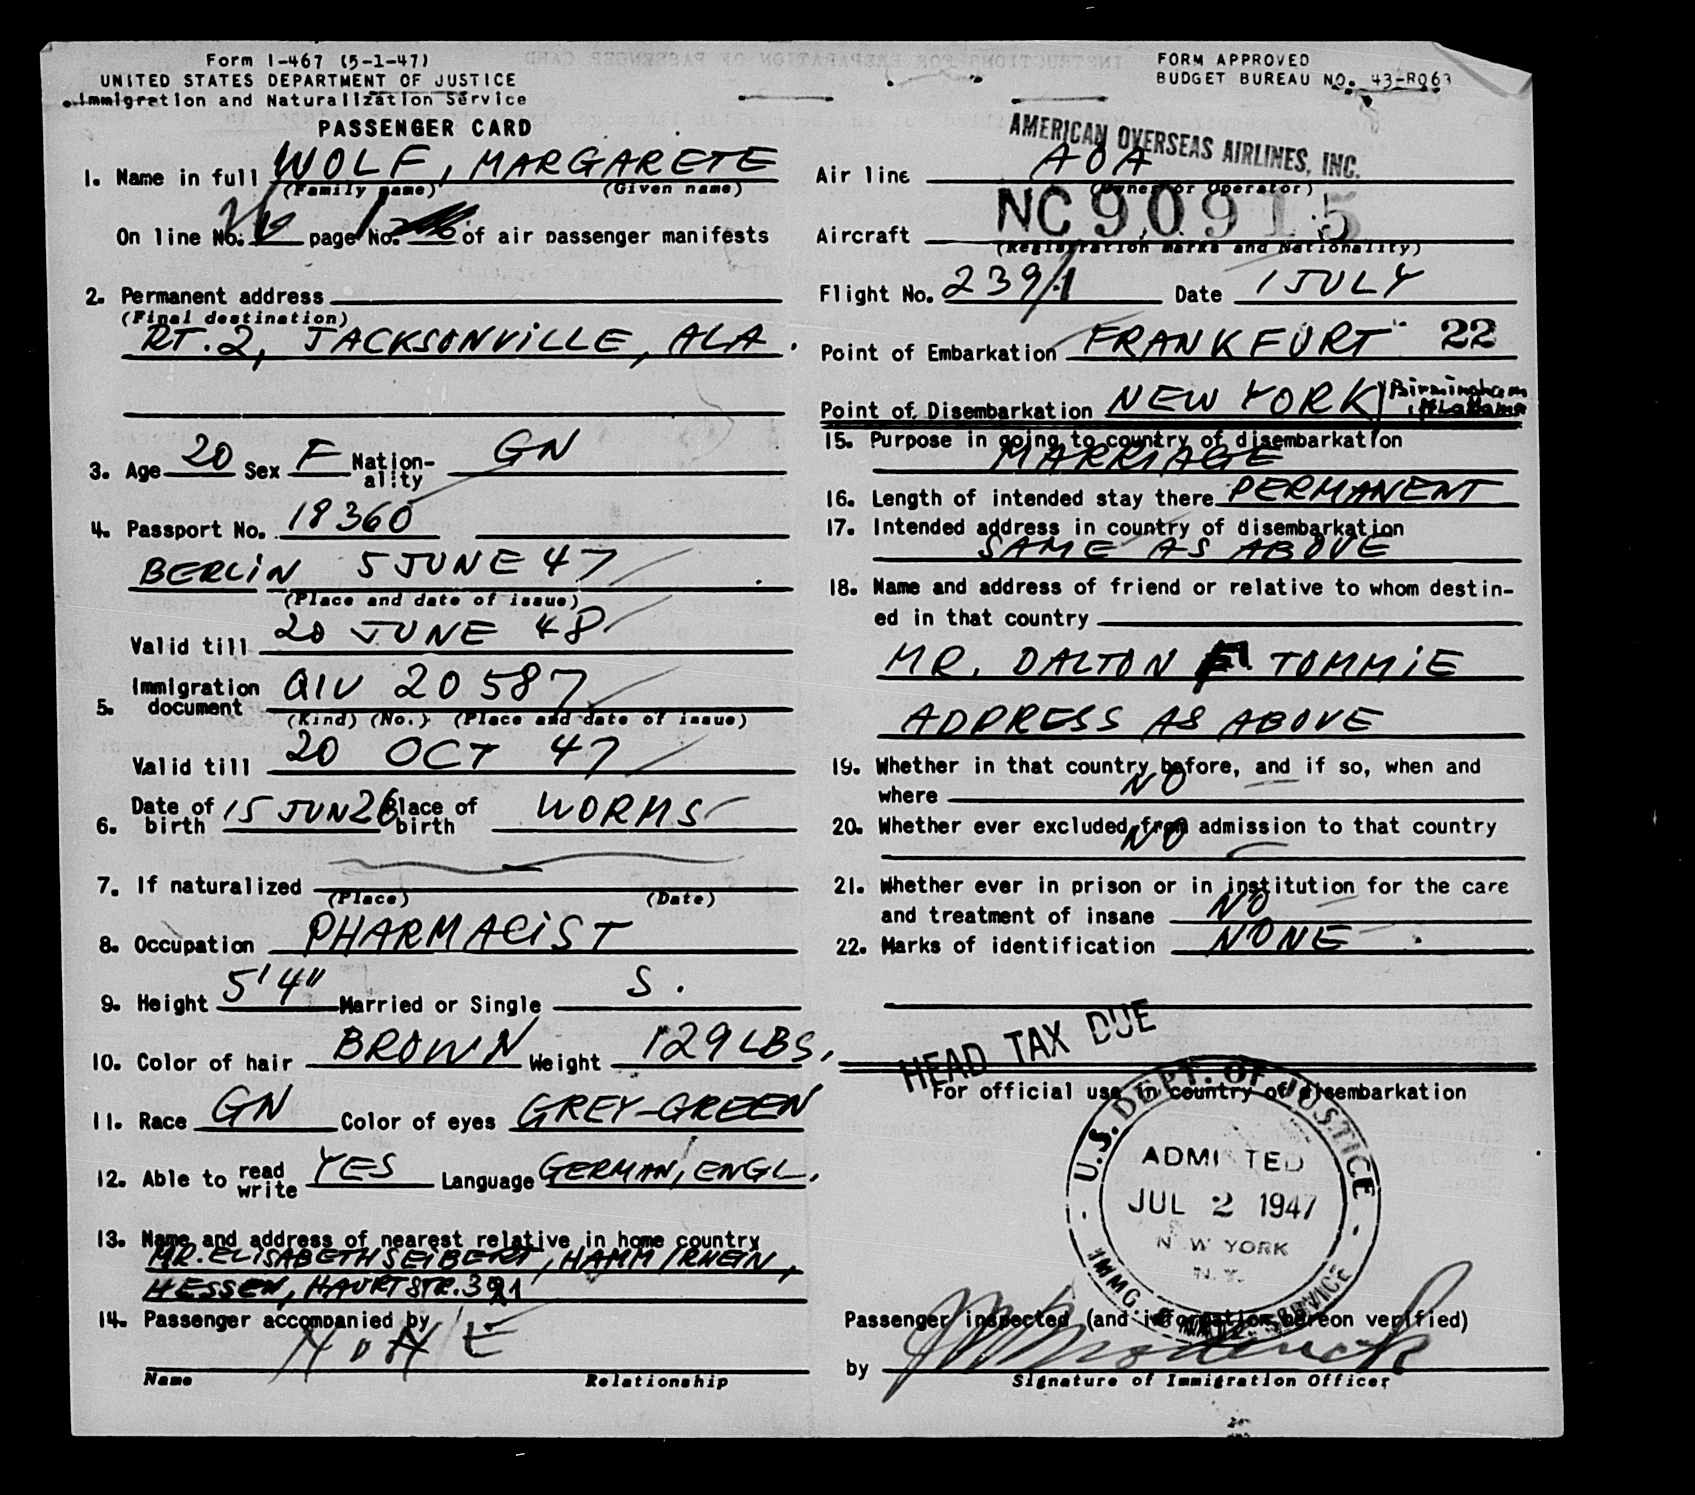 Form I-467 (5-1-47)
UNITED STATES DEPARTMENT OF JUSTICE
Immigration and Naturalization Service
PASSENGER CARD
1. Name in full WOLF, MARGARETE
(Family name) (Given name)
On line No. page No. of air passenger manifests
2. Permanent address
(Final destination)
RT. 2, JACKSONVILLE, ALA.
3. Age 20 Sex F Nation-ality GN
4. Passport No. 18360
BERLIN 5 JUNE 47
(Place and date of issue)
Valid till 20 JUNE 48
5. Immigration document QIV 20587
(Kind) (No.) (Place and date of issue)
Valid till 20 OCT 47
6. Date of birth 15 JUN 26 Place of birth WORMS
7. If naturalized
(Place) (Date)
8. Occupation PHARMACIST
9. Height 5'4" Married or Single S.
10. Color of hair BROWN Weight 129 LBS.
11. Race GN Color of eyes GREY-GREEN
12. Able to read write YES Language GERMAN, ENGL.
13. Name and address of nearest relative in home country
MR. ELISABETH SEIBERT, HAMM/RHEIN,
HESSEN,
14. Passenger accompanied by
NONE
Name Relationship
FORM APPROVED
BUDGET BUREAU NO. 43-R063
AMERICAN OVERSEAS AIRLINES, INC.
Air line AOA
(Owner or Operator)
Aircraft NC 90915
(Registration marks and Nationality)
Flight No. 239/1 Date 1 JULY
Point of Embarkation FRANKFURT 22
Point of Disembarkation NEW YORK Birmingham Alabama
15. Purpose in going to country of disembarkation
MARRIAGE
16. Length of intended stay there PERMANENT
17. Intended address in country of disembarkation
SAME AS ABOVE
18. Name and address of friend or relative to whom destin-
ed in that country
MR. DALTON TOMMIE
ADDRESS AS ABOVE
19. Whether in that country before, and if so, when and
where NO
20. Whether ever excluded from admission to that country
NO
21. Whether ever in prison or in institution for the care
and treatment of insane NO
22. Marks of identification NONE
HEAD TAX DUE
For official use in country of disembarkation
U.S. DEPT. OF JUSTICE
ADMITTED
JUL 2 1947
NEW YORK
N.Y.
IMMG. & NATZ. SERVICE
Passenger inspected (and information hereon verified)
by
Signature of Immigration Officer